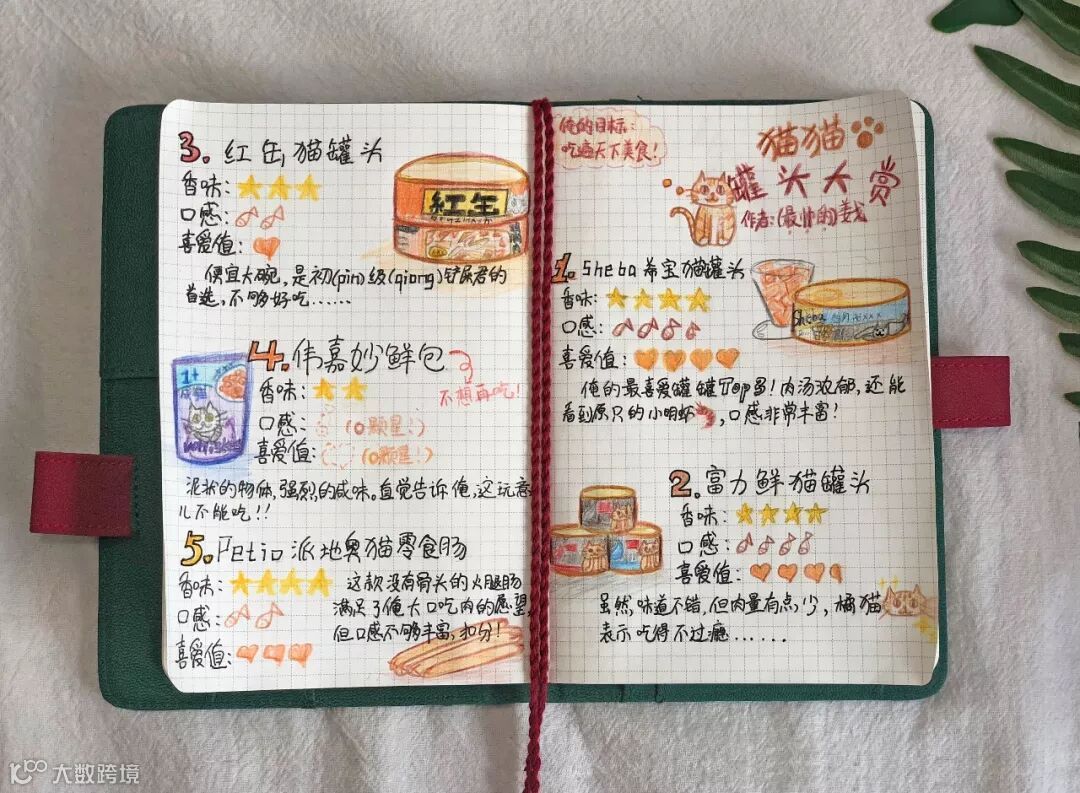 3. 红缶猫罐头
香味:
口感:
喜爱值:
便宜大碗,是初(pin)级(qiong)铲屎君的
首选,不够好吃......
紅缶
4. 伟嘉妙鲜包
不想再吃!
香味:
口感: (0颗星!)
喜爱值: (0颗星!)
1+
泥状的物体,强烈的咸味。直觉告诉俺,这玩意
儿不能吃!!
5. Petio派地奥猫零食肠
香味:
口感:
喜爱值:
这款没有骨头的火腿肠
满足了俺大口吃肉的愿望,
但口感不够丰富,扣分!
俺的目标:
吃遍天下美食!
猫猫
罐头大赏
作者:(最帅的)
1. Sheba希宝猫罐头
香味:
口感:
喜爱值:
Sheba
俺的最喜爱罐罐Top1!肉汤浓郁,还能
看到原只的小明虾,口感非常丰富!
2. 富力鲜猫罐头
香味:
口感:
喜爱值:
虽然味道不错,但肉量有点少,橘猫
表示吃得不过瘾......
大数跨境